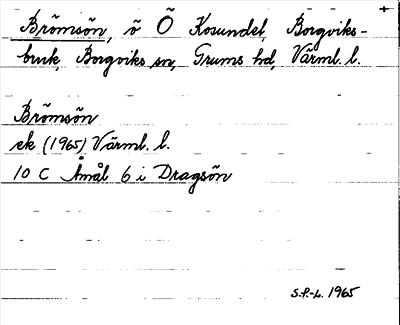 Brömsön, ö Ö Kosundet, Borgviks-
bruk, Borgviks sn, Grums hd, Värml. l.
Brömsön
ek (1965) Värml. l.
10 C Åmål 6 i Dragsön
S.P.-L. 1965